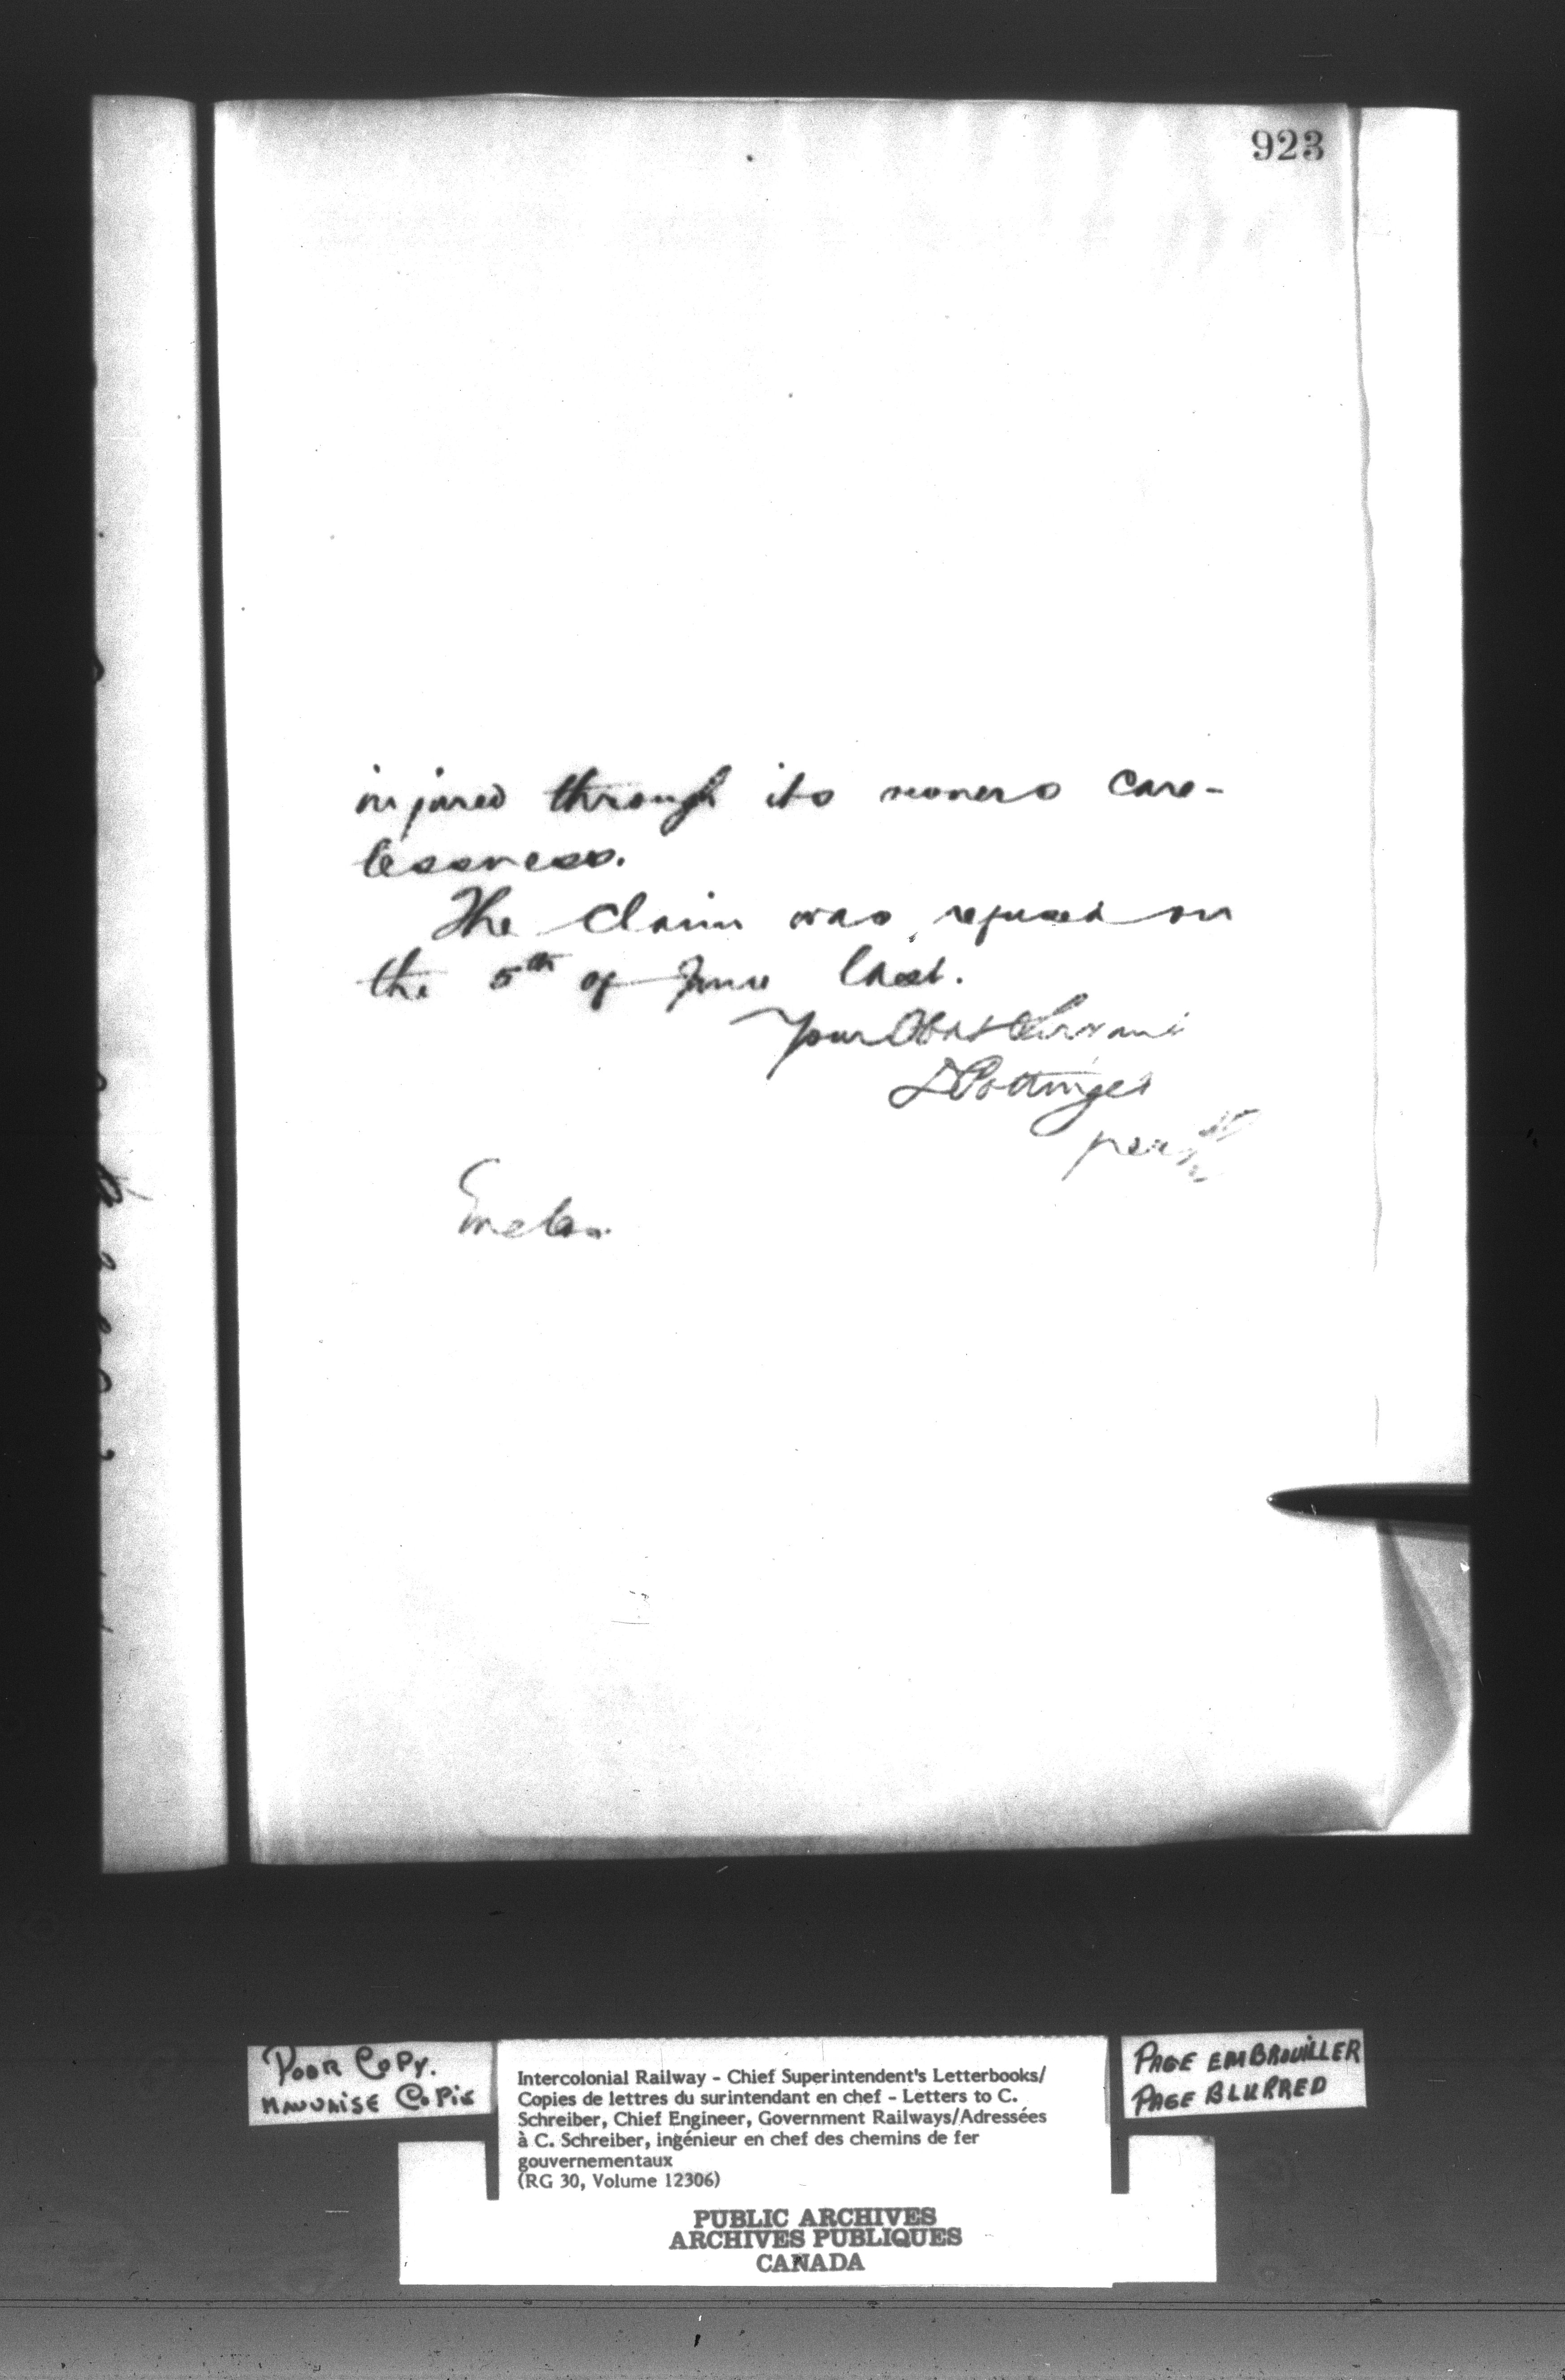 923
injured through its owners care-
lessness.
The claim was refused on
the 5th of June last.
Your Obdt Servant
D Pottinger
per
Enclos.
POOR COPY.
MAUVAISE COPIE
Intercolonial Railway - Chief Superintendent's Letterbooks/
Copies de lettres du surintendant en chef - Letters to C.
Schreiber, Chief Engineer, Government Railways/Adressées
à C. Schreiber, ingénieur en chef des chemins de fer
gouvernementaux
(RG 30, Volume 12306)
PAGE EMBROUILLER
PAGE BLURRED
PUBLIC ARCHIVES
ARCHIVES PUBLIQUES
CANADA